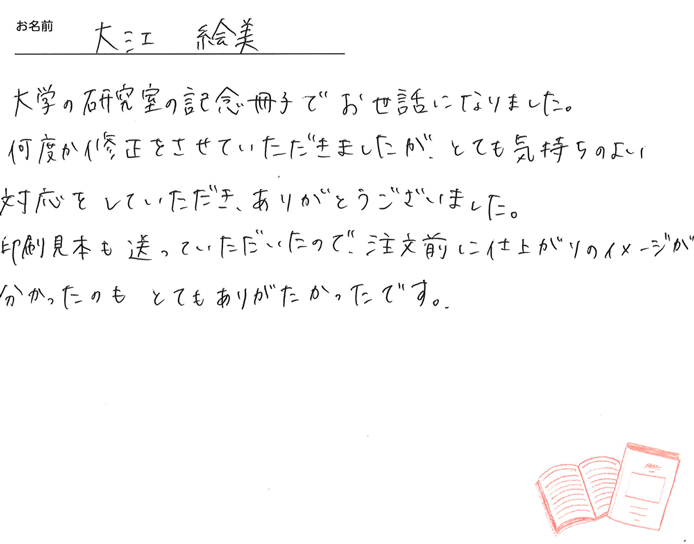 お名前 大江 絵美
大学の研究室の記念冊子でお世話になりました。
何度か修正をさせていただきましたが、とても気持ちのよい
対応をしていただき、ありがとうございました。
印刷見本も送っていただいたので、注文前に仕上がりのイメージが
分かったのもとてもありがたかったです。